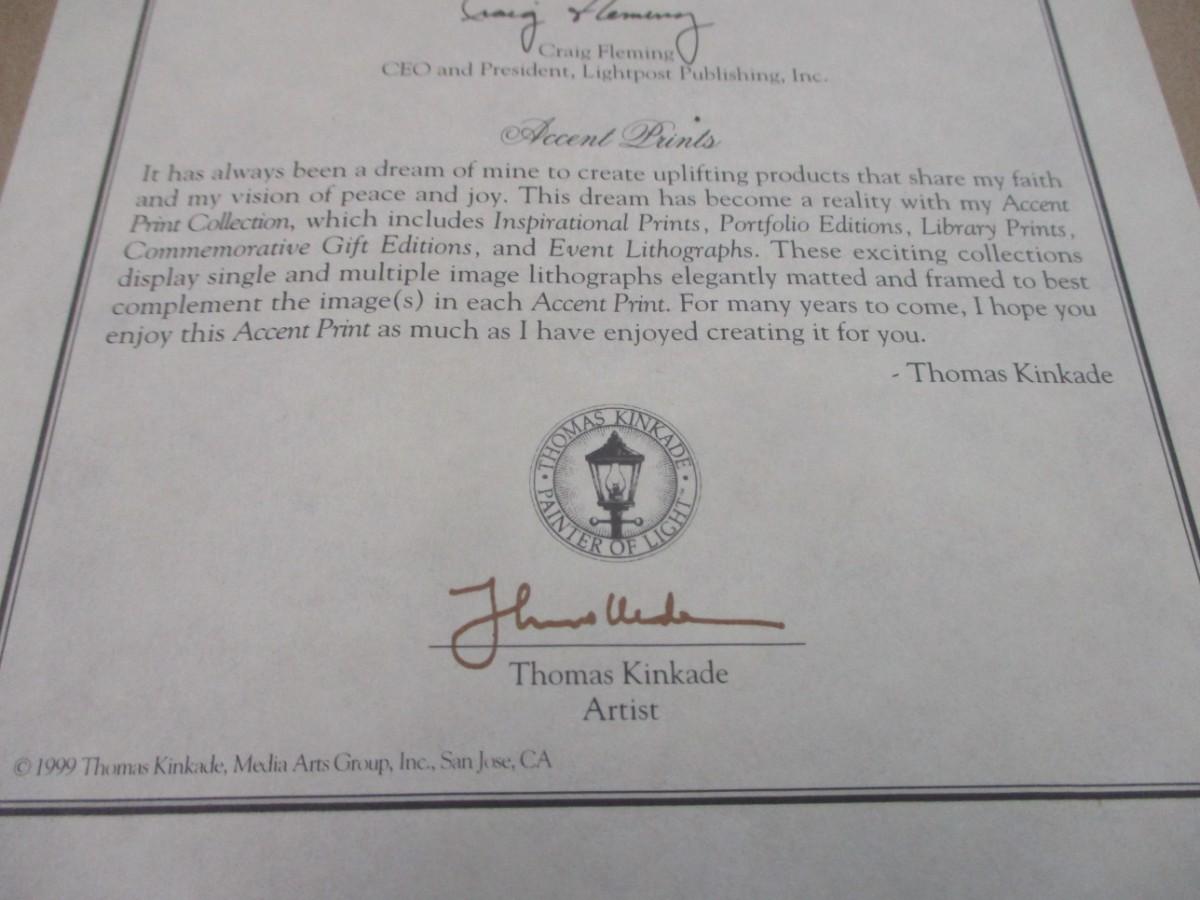 Craig Fleming
Craig Fleming
CEO and President, Lightpost Publishing, Inc.
Accent Prints
It has always been a dream of mine to create uplifting products that share my faith
and my vision of peace and joy. This dream has become a reality with my Accent
Print Collection, which includes Inspirational Prints, Portfolio Editions, Library Prints,
Commemorative Gift Editions, and Event Lithographs. These exciting collections
display single and multiple image lithographs elegantly matted and framed to best
complement the image(s) in each Accent Print. For many years to come, I hope you
enjoy this Accent Print as much as I have enjoyed creating it for you.
- Thomas Kinkade
THOMAS KINKADE
• PAINTER OF LIGHT™ •
Thomas Kinkade
Thomas Kinkade
Artist
© 1999 Thomas Kinkade, Media Arts Group, Inc., San Jose, CA